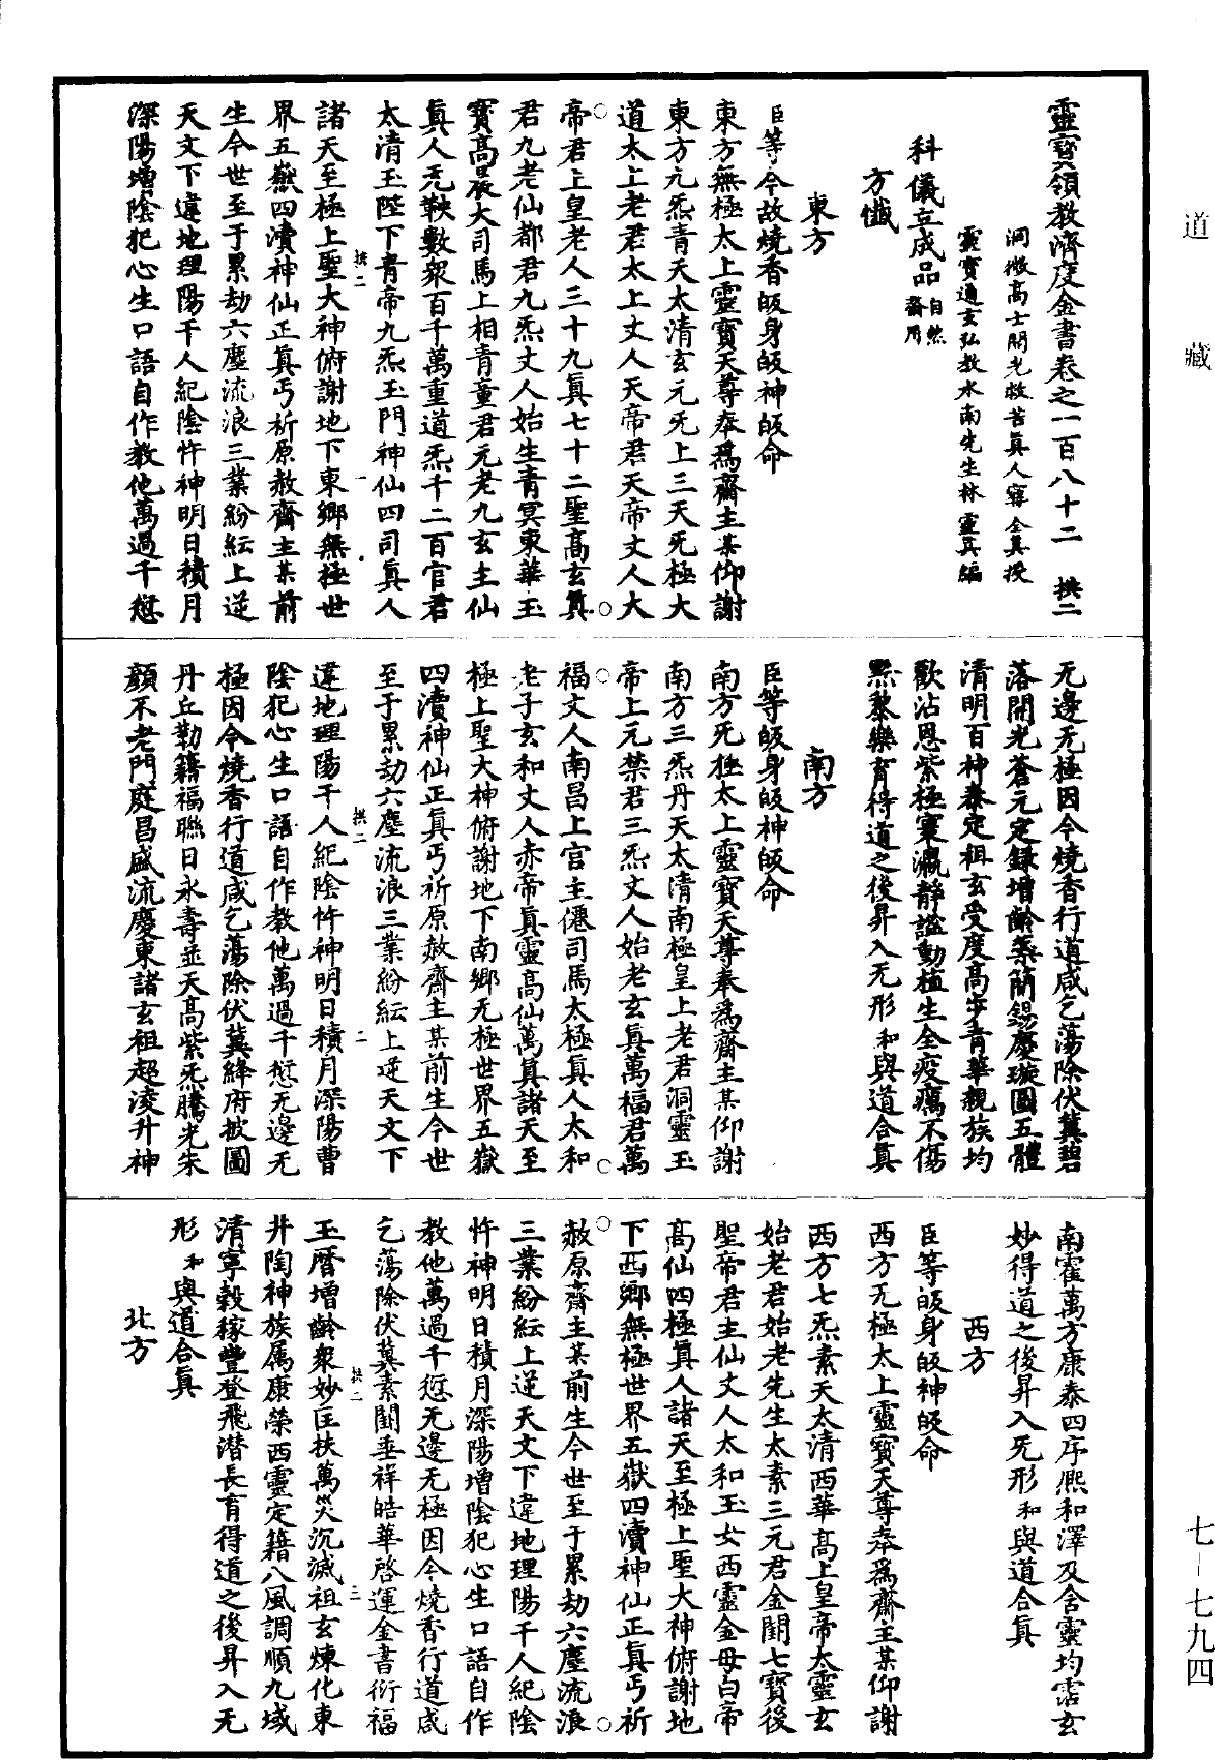 道藏
靈寶領教濟度金書卷之一百八十二 拱二
洞微高士開光救苦真人甯全真授
靈寶通玄弘教水南先生林靈真編
科儀立成品 自然齋用
方懺
東方
臣等今故燒香皈身皈神皈命
東方無極太上靈寶天尊奉為齋主某仰謝
東方九炁青天太清玄元旡上三天旡極大
道太上老君太上丈人天帝君天帝丈人大
帝君上皇老人三十九真七十二聖高玄真
君九老仙都君九炁丈人始生青冥東華玉
寶高晨大司馬上相青童君元老九玄主仙
真人旡鞅數眾百千萬重道炁千二百官君
太清玉陛下青帝九炁玉門神仙四司真人
諸天至極上聖大神俯謝地下東鄉無極世
界五嶽四瀆神仙正真丐祈原赦齋主某前
生今世至于累劫六塵流浪三業紛紜上逆
天文下違地理陽干人紀陰忤神明日積月
深陽增陰犯心生口語自作教他萬過千愆
旡邊旡極因今燒香行道咸乞蕩除伏冀碧
落開光蒼元定錄增齡蘂簡錫慶璇圖五體
清明百神泰定祖玄受度高步青華親族均
歡沾恩紫極寰瀛靜謐動植生全疫癘不傷
黔黎樂育得道之後昇入旡形 和與道合真
南方
臣等皈身皈神皈命
南方旡極太上靈寶天尊奉為齋主某仰謝
南方三炁丹天太清南極皇上老君洞靈玉
帝上元禁君三炁丈人始老玄真萬福君萬
福丈人南昌上官主僊司馬太極真人太和
老子玄和丈人赤帝真靈高仙萬真諸天至
極上聖大神俯謝地下南鄉旡極世界五嶽
四瀆神仙正真丐祈原赦齋主某前生今世
至于累劫六塵流浪三業紛紜上逆天文下
違地理陽干人紀陰忤神明日積月深陽曹
陰犯心生口語自作教他萬過千愆旡邊旡
極因今燒香行道咸乞蕩除伏冀絳府披圖
丹丘勒籍福聯日永壽並天高紫炁騰光朱
顏不老門庭昌盛流慶東諸玄祖超淩升神
南霍萬方康泰四序熙和澤及含靈均霑玄
妙得道之後昇入旡形 和與道合真
西方
臣等皈身皈神皈命
西方旡極太上靈寶天尊奉為齋主某仰謝
西方七炁素天太清西華高上皇帝太靈玄
始老君始老先生太素三元君金闕七寶後
聖帝君主仙丈人太和玉女西靈金母白帝
高仙四極真人諸天至極上聖大神俯謝地
下西鄉無極世界五嶽四瀆神仙正真丐祈
赦原齋主某前生今世至于累劫六塵流浪
三業紛紜上逆天文下違地理陽干人紀陰
忤神明日積月深陽增陰犯心生口語自作
教他萬過千愆旡邊旡極因今燒香行道咸
乞蕩除伏冀素闕垂祥皓華啓運金書衍福
玉曆增齡衆妙匡扶萬災沉滅祖玄煉化東
井陶神族属康榮西靈定籍八風調順九域
清寧穀稼豐登飛潛長育得道之後昇入旡
形 和與道合真
北方
七-七九四